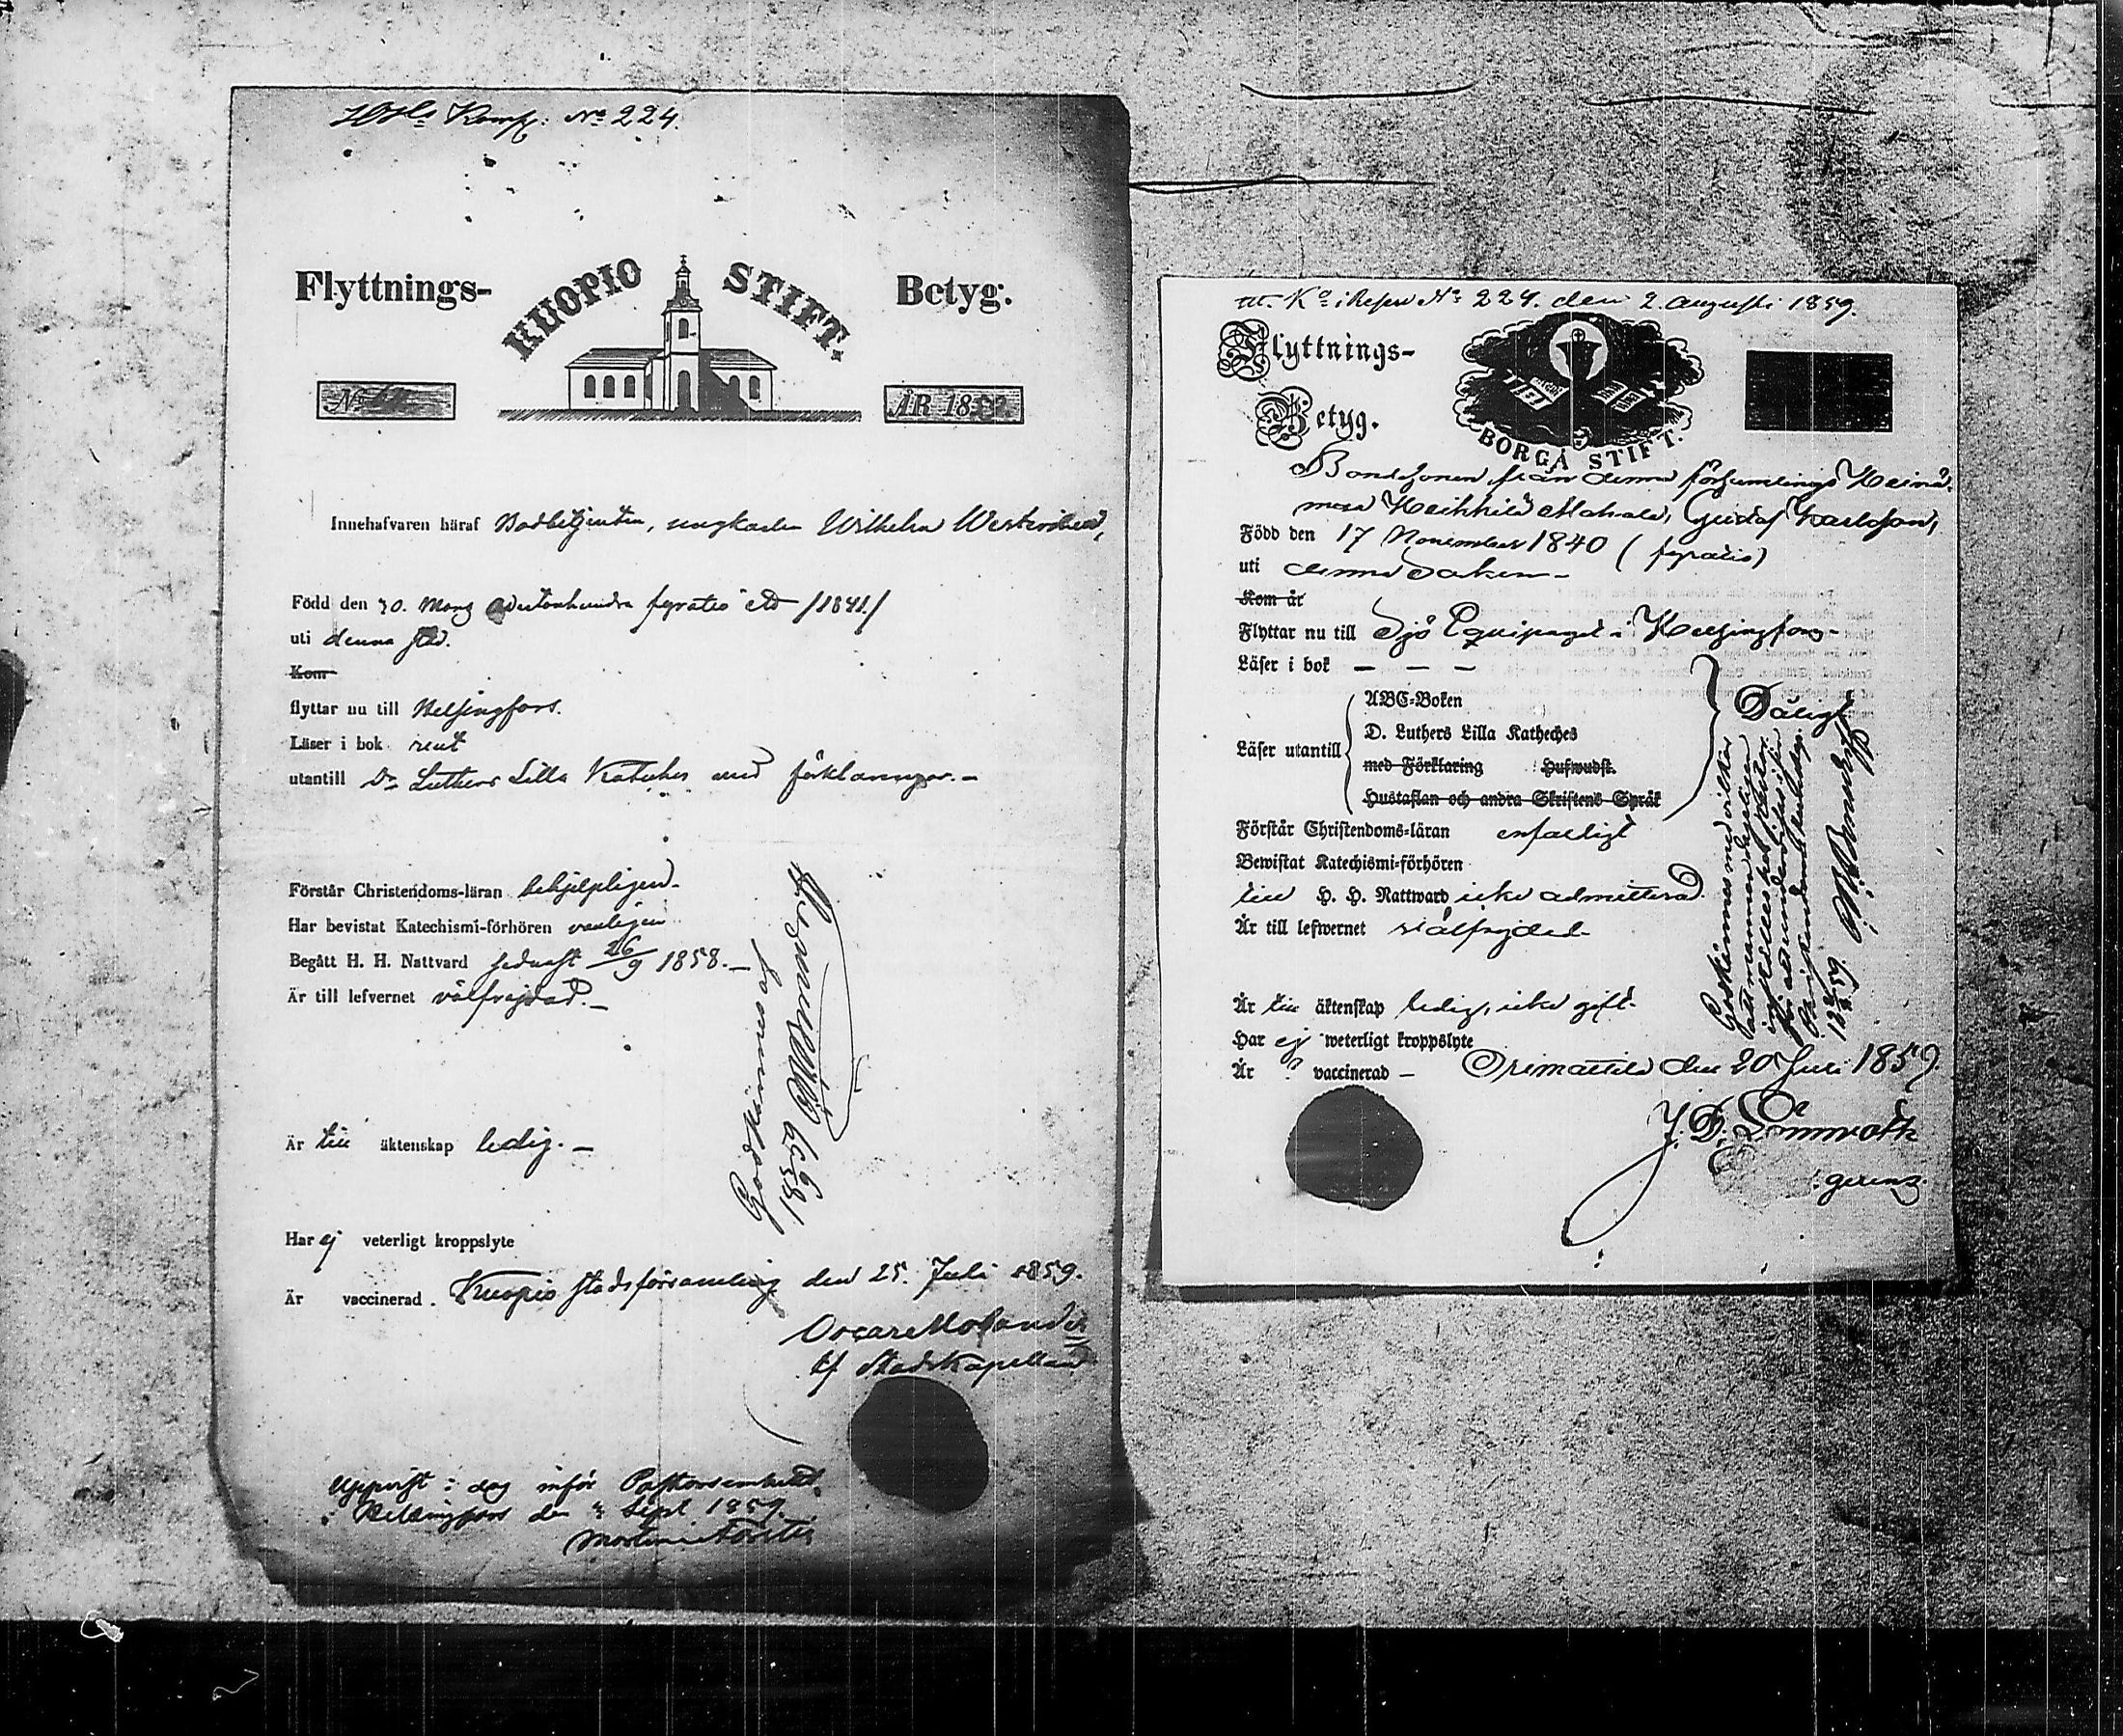 Komp: No 224.
Flyttnings-
KUOPIO STIFT.
Betyg.
No
ÅR 1859
Innehafvaren häraf Bodbetjenten, ungkarlen Wilhelm
Född den 30. Mars adertonhundra fyratio ett /1841/
uti denna stad.
Kom
flyttar nu till Helsingfors.
Läser i bok rent
utantill Dr Luthers Lilla Kateches med förklaringar. —
Förstår Christendoms-läran behjelpligen.
Har bevistat Katechismi-förhören vanligen
Begått H. H. Nattvard sednast 26/9 1858. —
Är till lefvernet välfrejdad. —
Är till äktenskap ledig. —
Har ej veterligt kroppslyte
Är vaccinerad. Kuopio stadsförsamling den 25. Juli 1859.
Oscar Molander
tf Stadskapellan
Godkännes af
Uppvist i dag inför Pastorsembetet,
Helsingfors den Sept. 1859.
No 224. den 2. augusti 1859.
Flyttnings-
Betyg.
BORGÅ STIFT.
Bondesonen från denna församlings
Mattala, Gustaf Karlsson,
Född den 17 November 1840 (fyratio)
uti denna Socken —
Kom år
Flyttar nu till Sjö Equipaget i Helsingfors —
Läser i bok — — —
Läser utantill
ABC-Boken
D. Luthers Lilla Katheches
med Förklaring Hufwudst.
Hustaflan och andra Skriftens Språk
Dåligt
Förstår Christendoms-läran enfaldigt
Bewistat Katechismi-förhören
till H. H. Nattward icke admitterad.
Är till lefwernet wälfrejdad
Är till äktenskap ledig, icke gift.
Har ej weterligt kroppslyte
Är vaccinerad — Orimattila den 20 Juli 1859.
J. F. Lönnroth
Godkännes med